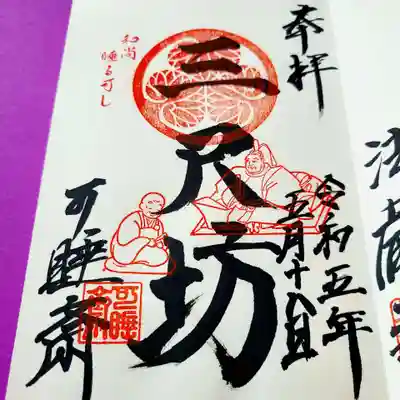 奉拝
令和五年
五月十八日
三尺坊
和尚
睡る可し
可睡斎
可睡
斎